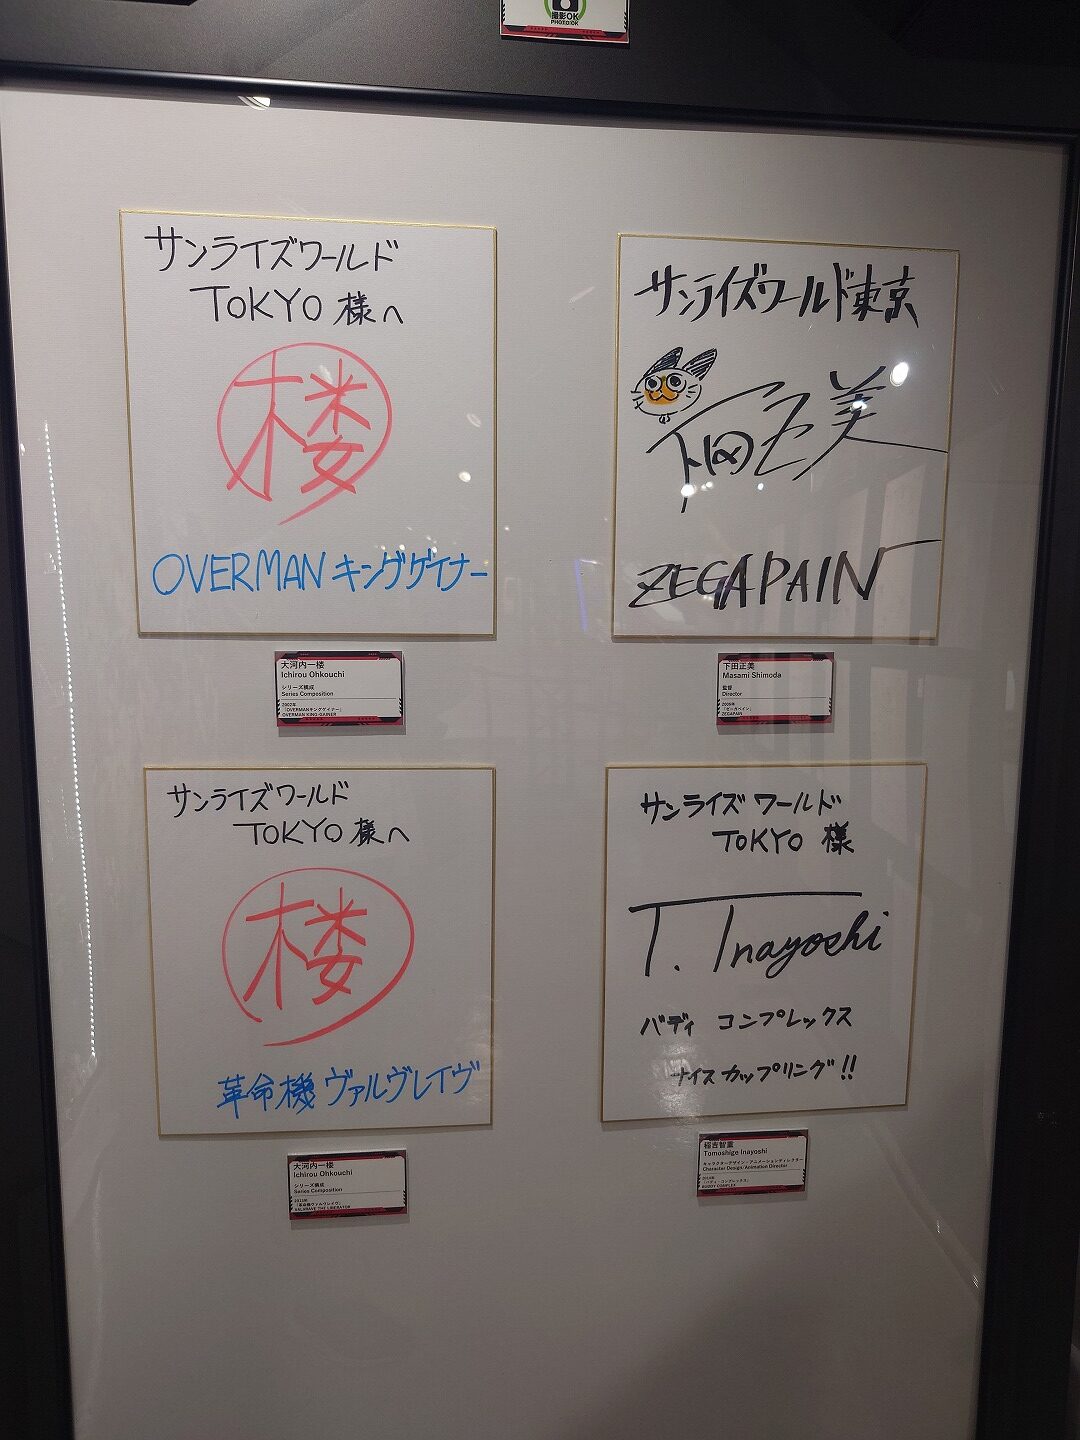 撮影OK
PHOTO OK
サンライズワールド
TOKYO 様へ
楼
OVERMAN キングゲイナー
大河内一楼
Ichirou Ohkouchi
シリーズ構成
Series Composition
2002年
『OVERMANキングゲイナー』
OVERMAN KING-GAINER
サンライズワールド東京
下田正美
ZEGAPAIN
下田正美
Masami Shimoda
監督
Director
2006年
『ゼーガペイン』
ZEGAPAIN
サンライズワールド
TOKYO 様へ
楼
革命機ヴァルヴレイヴ
大河内一楼
Ichirou Ohkouchi
シリーズ構成
Series Composition
2013年
『革命機ヴァルヴレイヴ』
VALVRAVE THE LIBERATOR
サンライズ ワールド
TOKYO 様
T. Inayoshi
バディ コンプレックス
ナイス カップリング!!
稲吉智重
Tomoshige Inayoshi
キャラクターデザイン・アニメーションディレクター
Character Design/Animation Director
2014年
『バディ・コンプレックス』
BUDDY COMPLEX